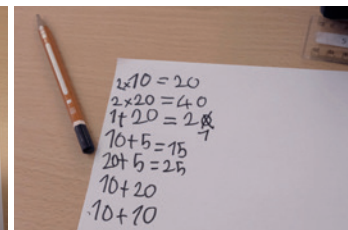 2×10=20
2×20=40
1+20=21
10+5=15
20+5=25
10+20
10+10